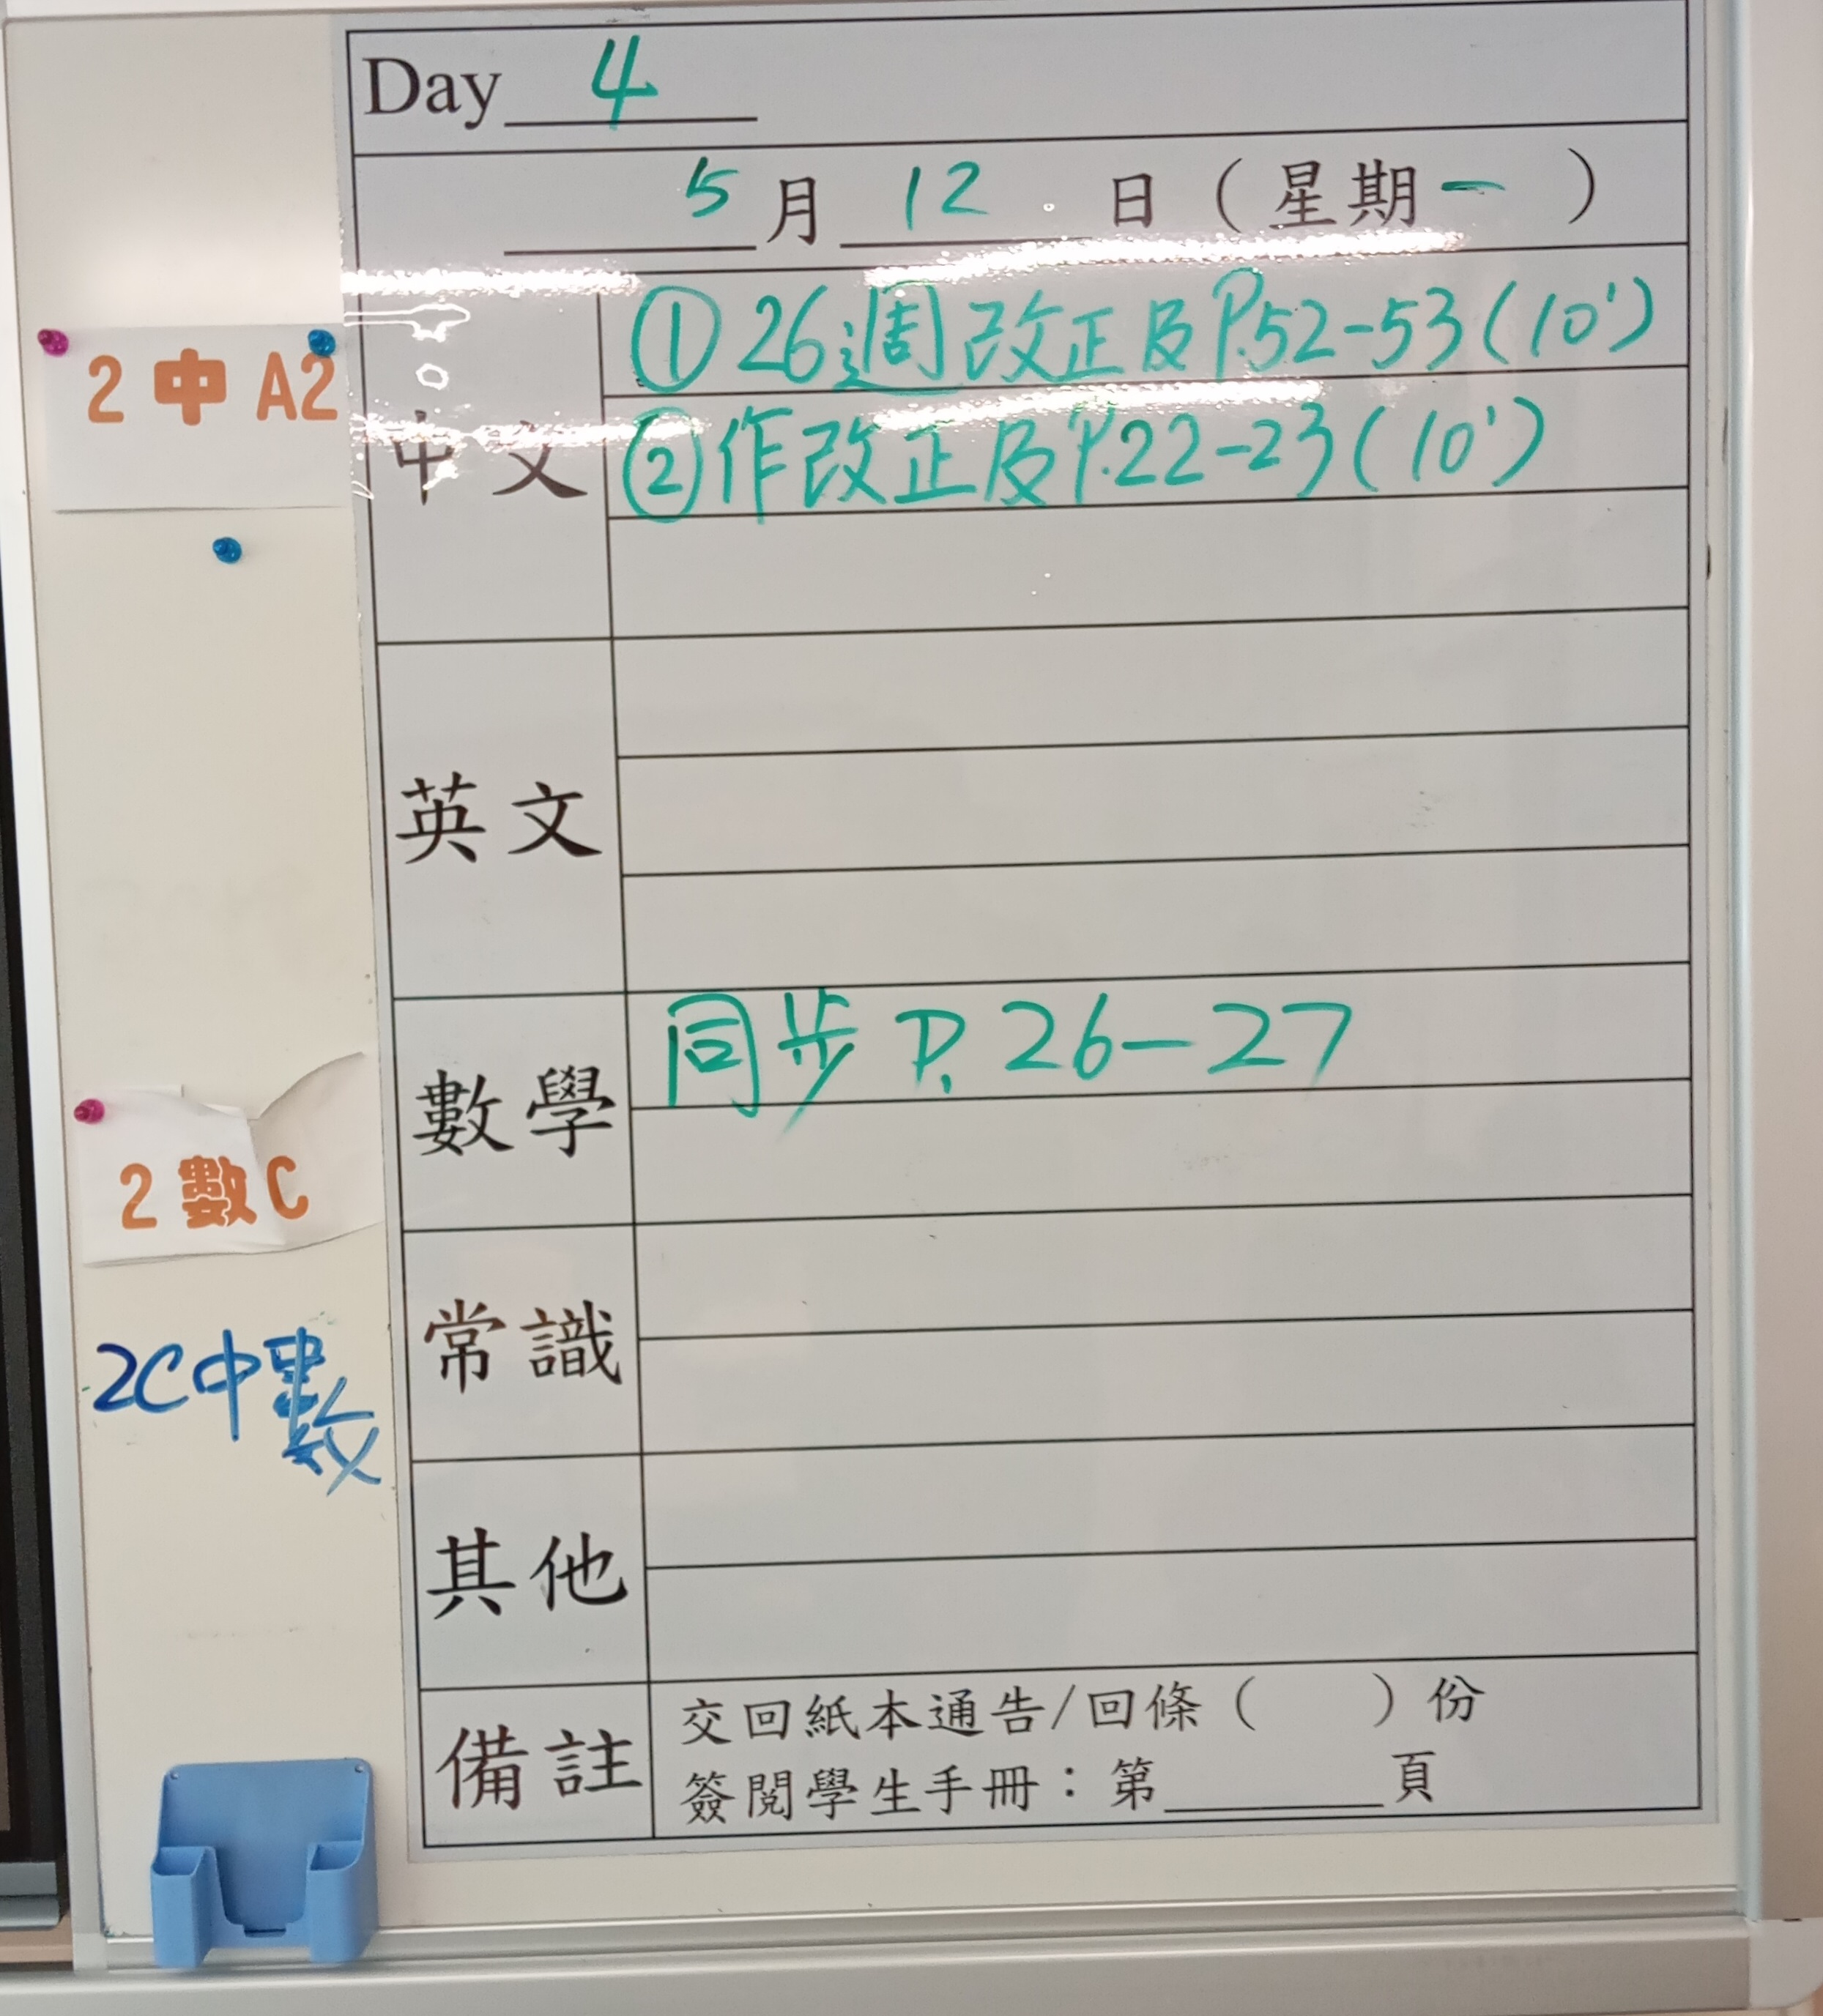 Day 4
5月12日(星期一)
2 中 A2
中文
①26週改正及P.52-53(10')
②作改正及P.22-23(10')
英文
數學
同步 P. 26-27
2 數 C
常識
2C中數
其他
備註
交回紙本通告/回條( )份
簽閱學生手冊:第____頁